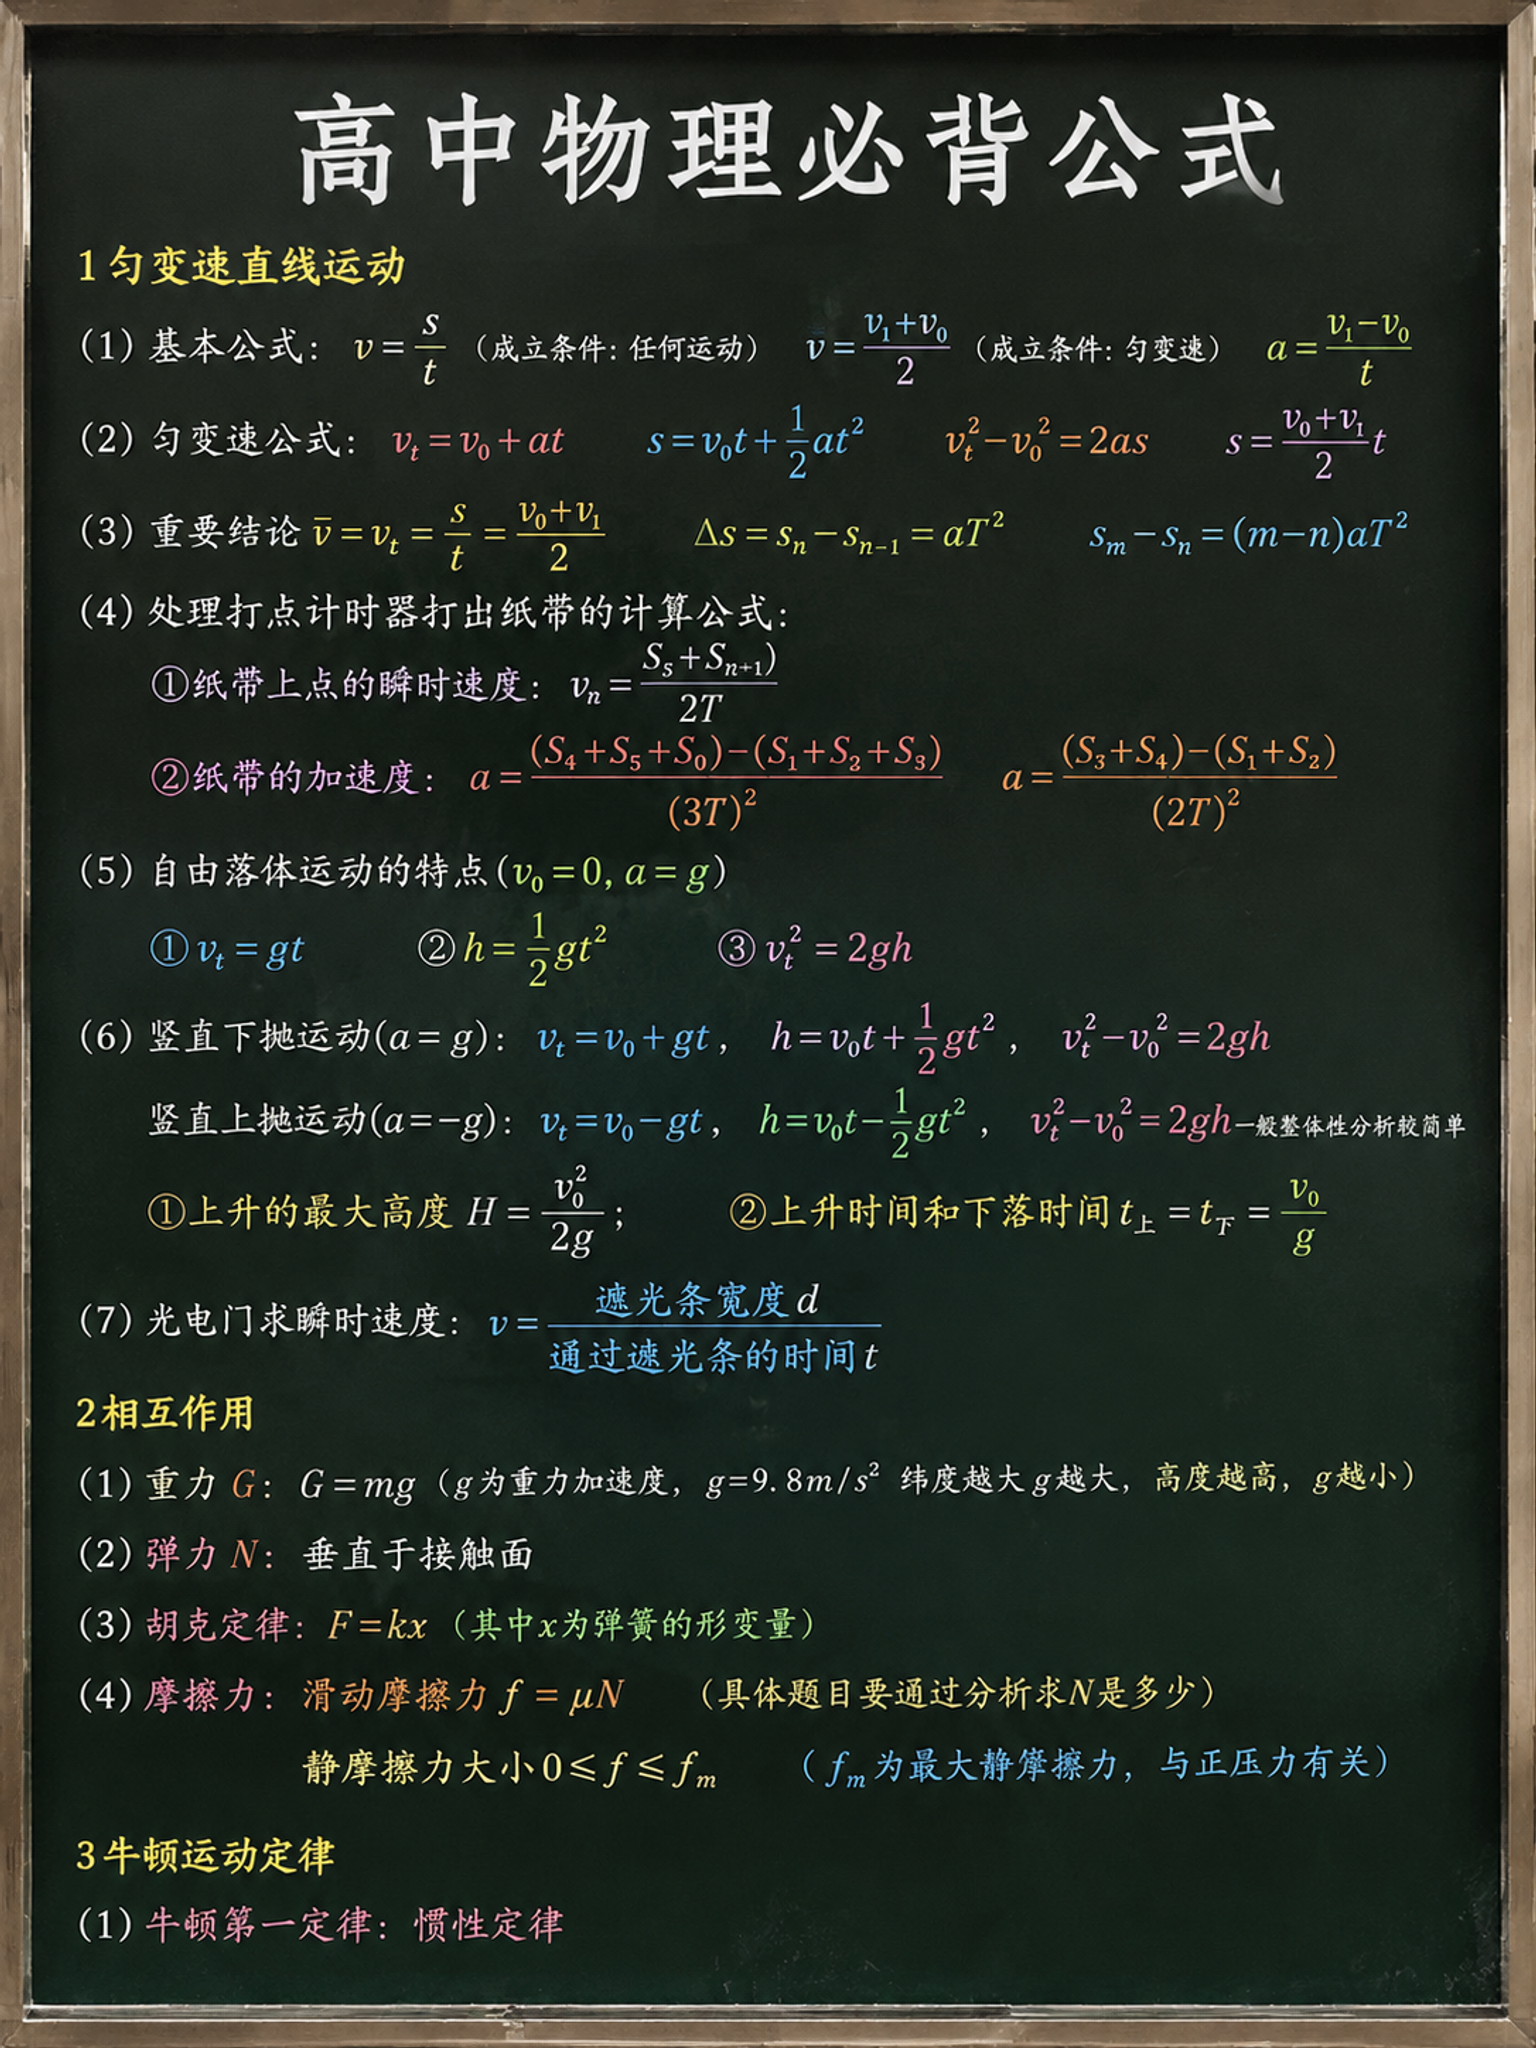 高中物理必背公式
1 匀变速直线运动
(1) 基本公式： v = s/t （成立条件：任何运动） v = (v₁+v₀)/2 （成立条件：匀变速） a = (v₁−v₀)/t
(2) 匀变速公式： vₜ = v₀ + at s = v₀t + 1/2 at² vₜ² − v₀² = 2as s = (v₀+v₁)/2 t
(3) 重要结论 v̄ = vₜ = s/t = (v₀+v₁)/2 Δs = sₙ − sₙ₋₁ = aT² sₘ − sₙ = (m−n)aT²
(4) 处理打点计时器打出纸带的计算公式：
①纸带上点的瞬时速度： vₙ = Sₛ + Sₙ₊₁) / 2T
②纸带的加速度： a = (S₄+S₅+S₀)−(S₁+S₂+S₃) / (3T)² a = (S₃+S₄)−(S₁+S₂) / (2T)²
(5) 自由落体运动的特点(v₀ = 0, a = g)
① vₜ = gt ② h = 1/2 gt² ③ vₜ² = 2gh
(6) 竖直下抛运动(a = g)： vₜ = v₀ + gt， h = v₀t + 1/2 gt²， vₜ² − v₀² = 2gh
竖直上抛运动(a = −g)： vₜ = v₀ − gt， h = v₀t − 1/2 gt²， vₜ² − v₀² = 2gh 一般整体性分析较简单
①上升的最大高度 H = v₀²/2g； ②上升时间和下落时间 t上 = t下 = v₀/g
(7) 光电门求瞬时速度： v = 遮光条宽度 d / 通过遮光条的时间 t
2 相互作用
(1) 重力 G： G = mg （g为重力加速度，g=9.8m/s² 纬度越大g越大，高度越高，g越小）
(2) 弹力 N： 垂直于接触面
(3) 胡克定律： F = kx （其中x为弹簧的形变量）
(4) 摩擦力： 滑动摩擦力 f = μN （具体题目要通过分析求N是多少）
静摩擦力大小 0 ≤ f ≤ fₘ （fₘ为最大静摩擦力，与正压力有关）
3 牛顿运动定律
(1) 牛顿第一定律： 惯性定律